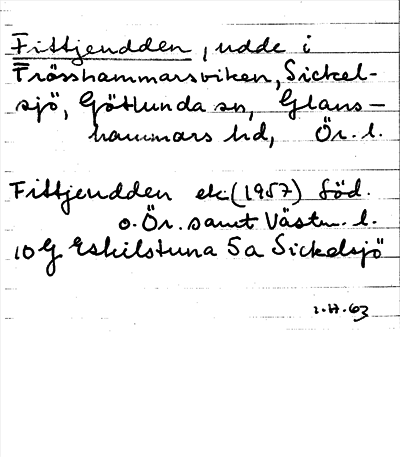 Fittjeudden, udde i
Frösshammarsviken, Sickel-
sjö, Götlunda sn, Glans-
hammars hd, Ör. l.
Fittjeudden ek (1957) Söd.
o. Ör. samt Västm. l.
10 G Eskilstuna 5a Sickelsjö